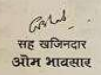 सह खजिनदार
ओम भावसार